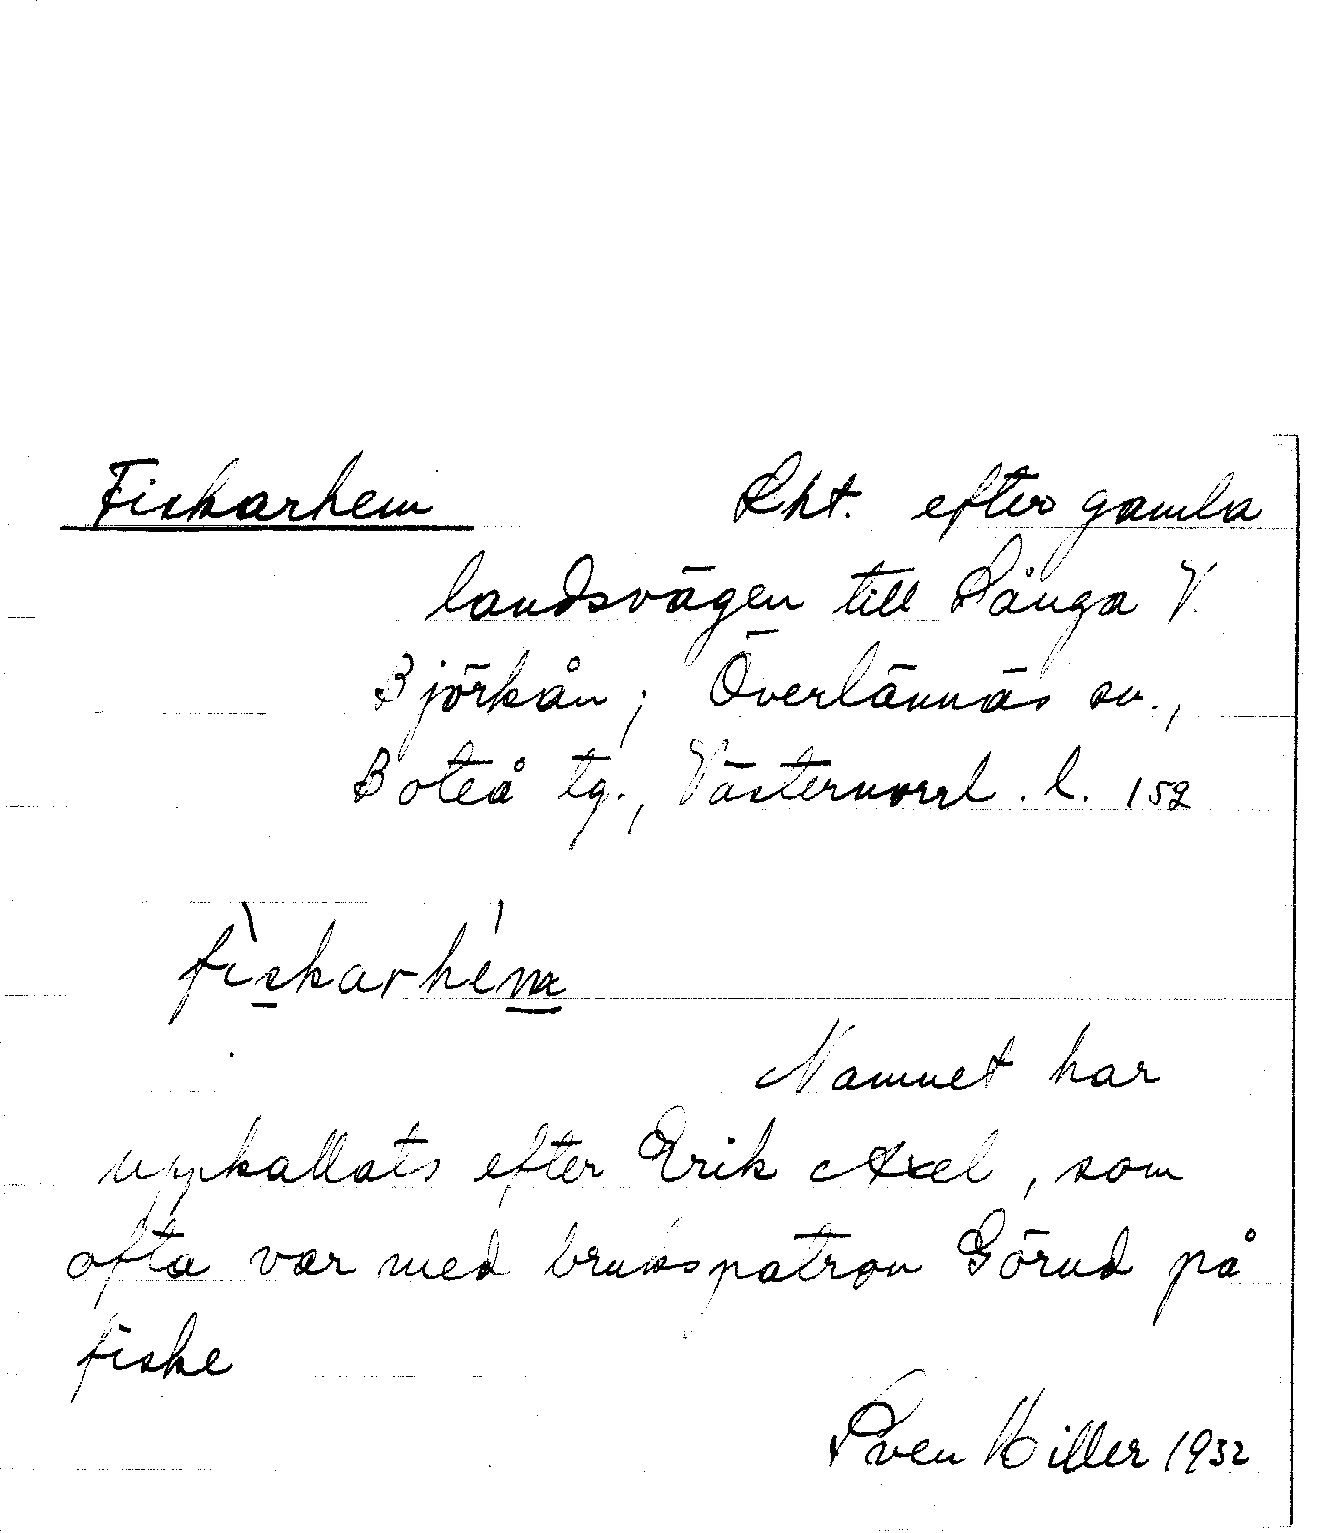 Fiskarhem Lht. efter gamla
landsvägen till Långa V.
Björkån; Överlännäs sn.,
Boteå tg., Västernorrl. l. 152
fìskarhém
Namnet har
uppkallats efter Erik Axel, som
ofta var med brukspatron Görud på
fiske
Sven Hiller 1932